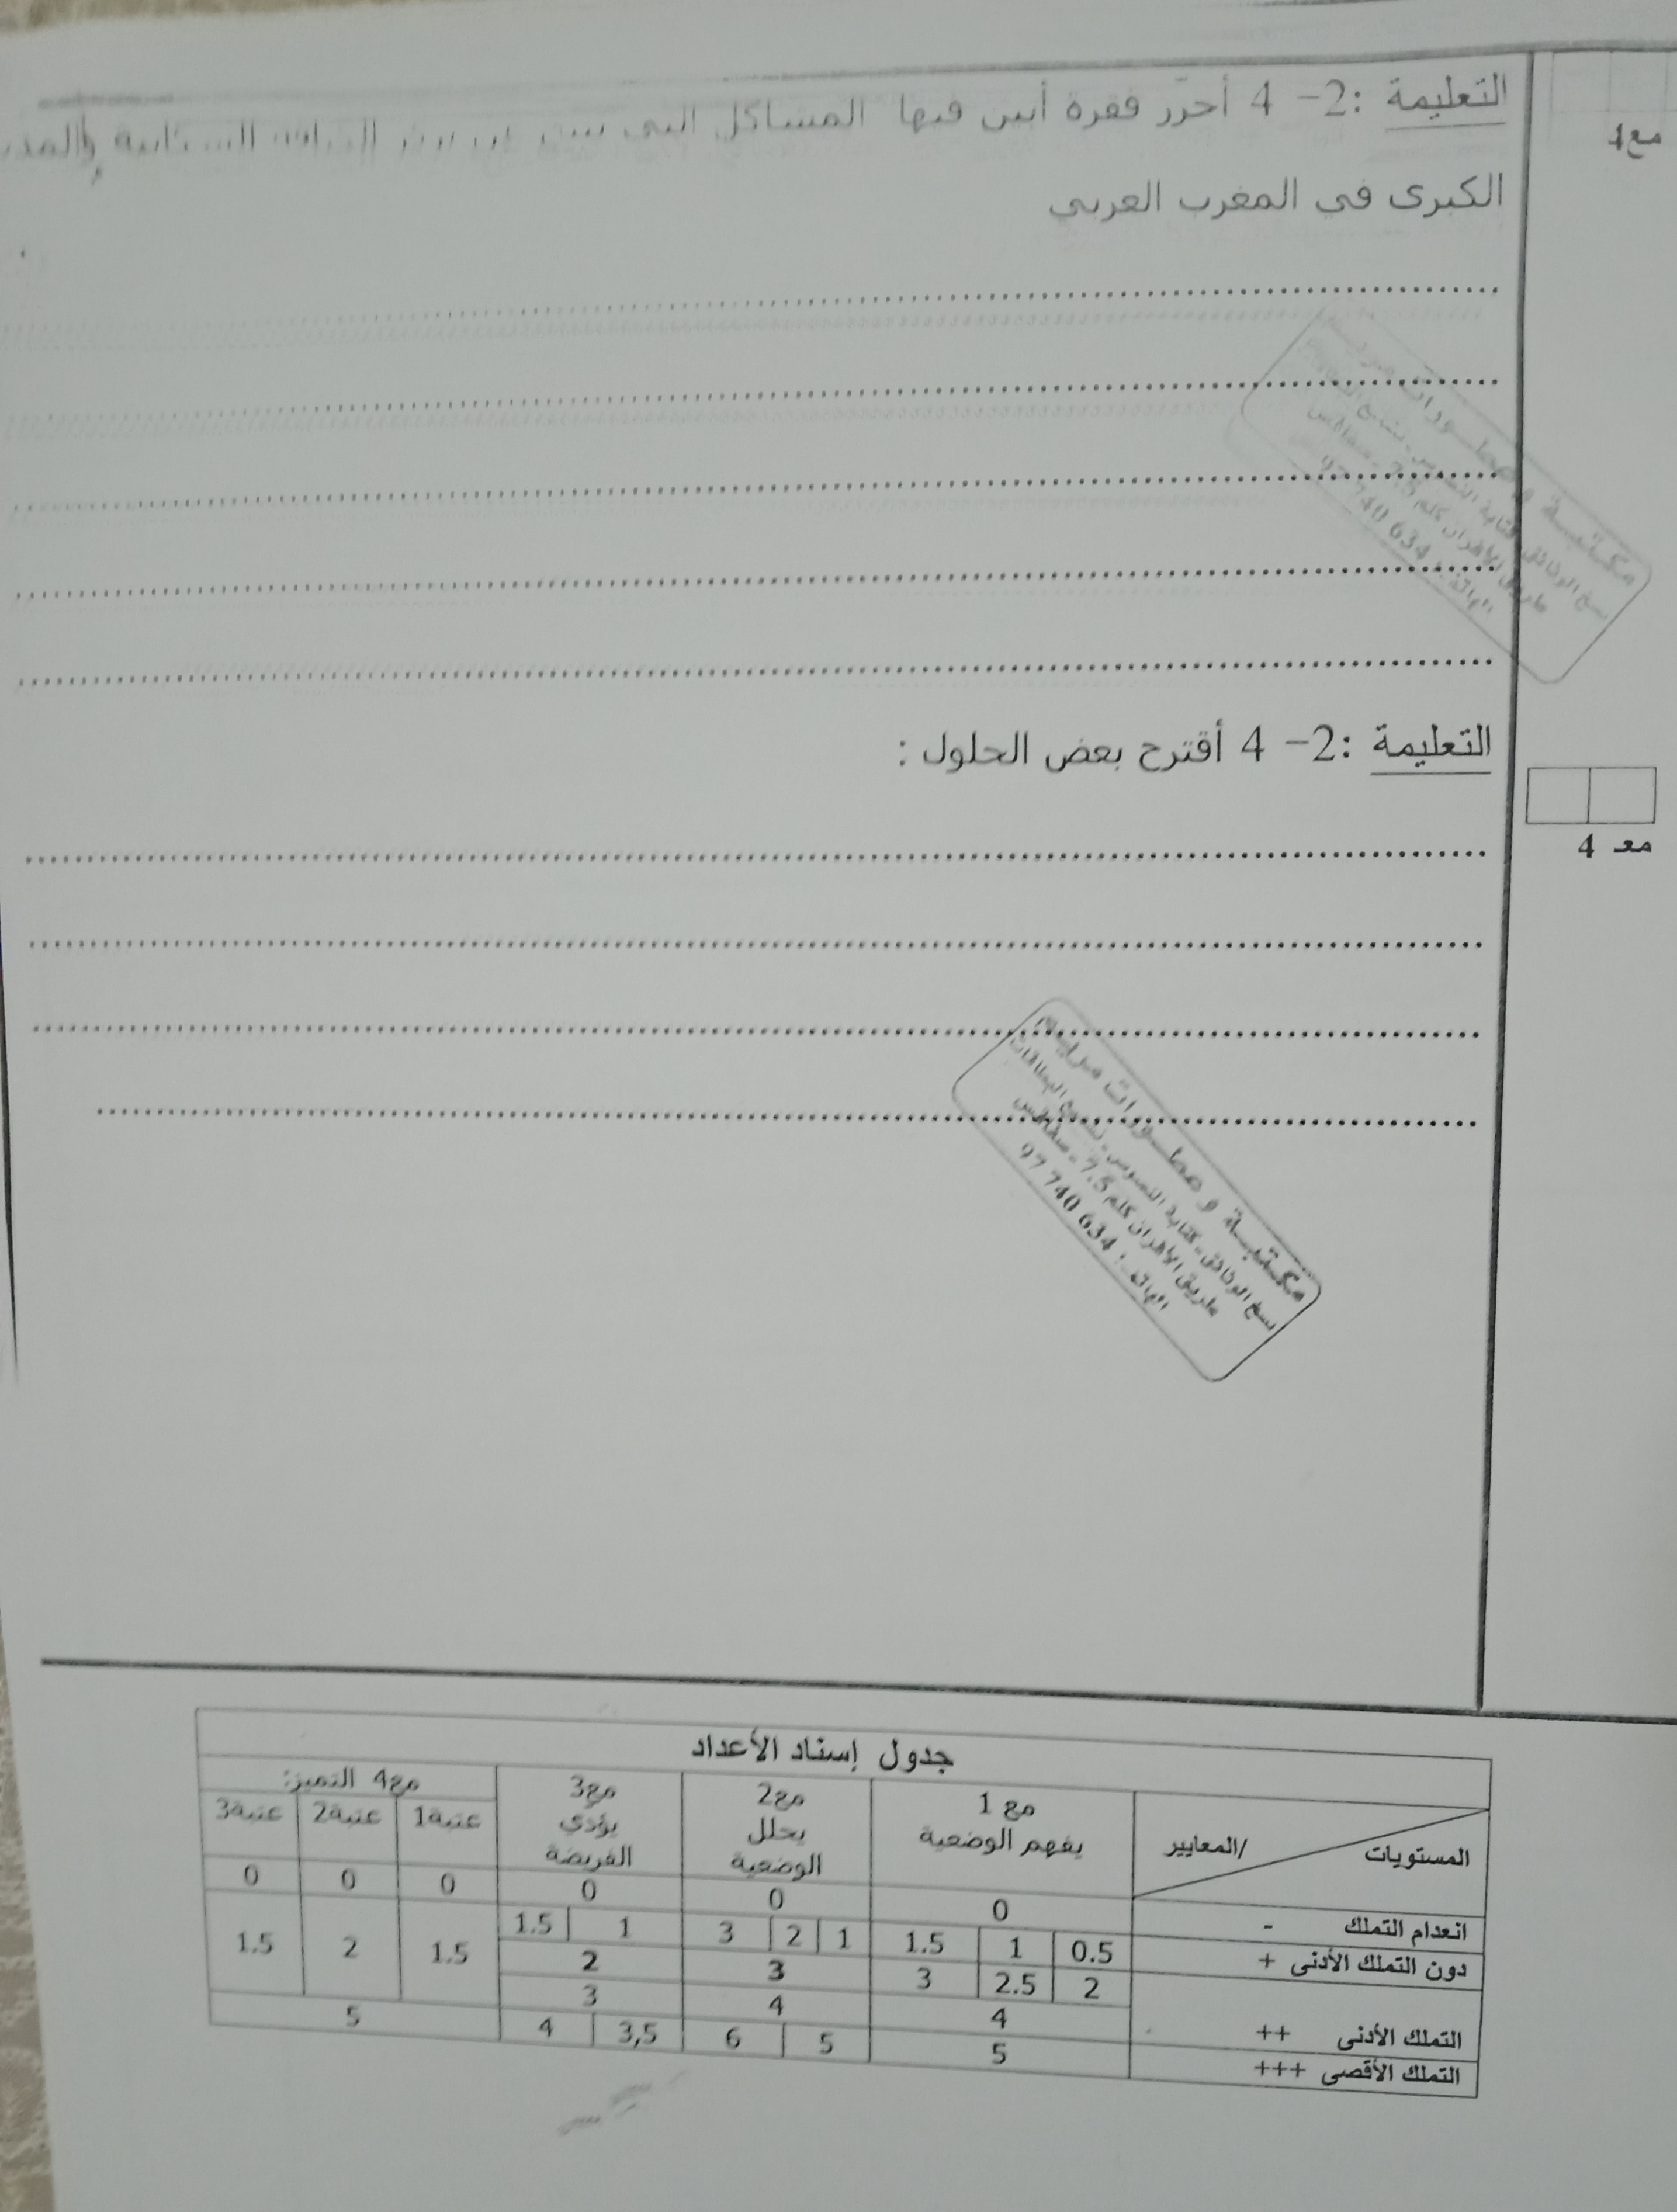 التعليمة :2- 4 أحرّر فقرة أبين فيها المشاكل التي
الكبرى في المغرب العربي
مع4
التعليمة :2- 4 أقترح بعض الحلول :
مع 4
مكتبة و مطـــورات مرايم
نسخ الوثائق - كتابة النصوص -
طريق الأفران كلم 7.5 - صفاقس
الهاتف : 634 740 97
جدول إسناد الأعداد
المستويات /المعايير
مع 1 يفهم الوضعية
مع2 يحلل الوضعية
مع3 يؤدي الفريضة
مع4 التميز:
عتبة1 عتبة2 عتبة3
انعدام التملك - 0 0 0 0 0 0
دون التملك الأدنى + 0.5 1 1.5 1 2 3 1 1.5
2 2.5 3 3 2 1.5 2 1.5
التملك الأدنى ++ 4 4 3
التملك الأقصى +++ 5 5 6 3,5 4 5